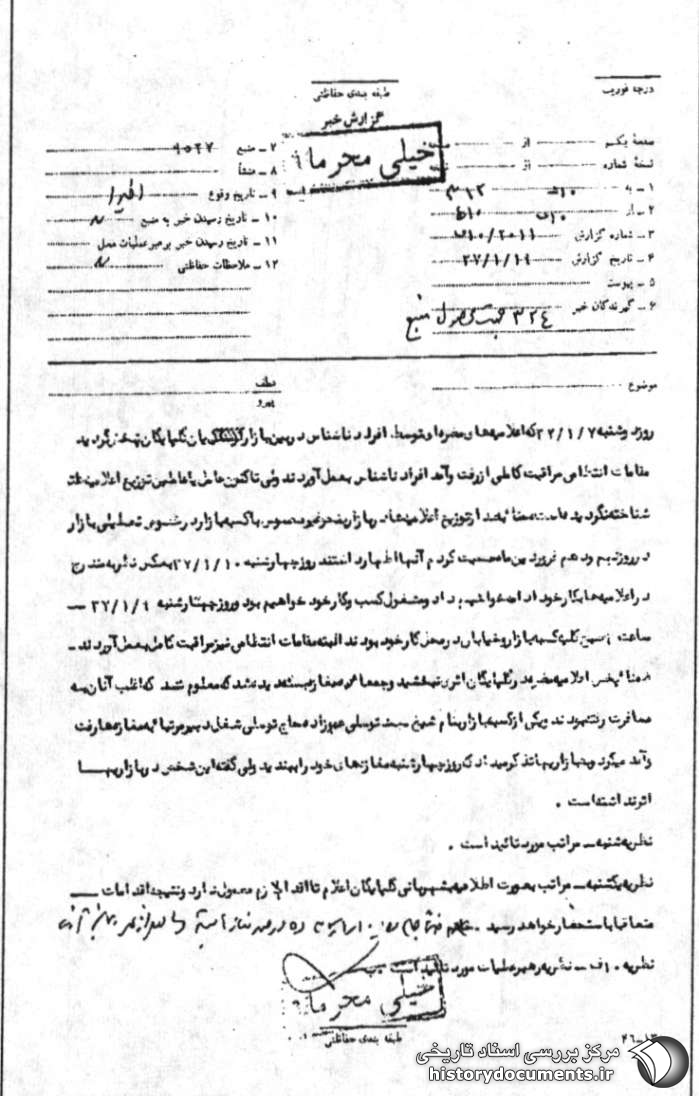 درجه فوریت
طبقه بندی حفاظتی
گزارش خبر
خیلی محرمانه
صفحه یکم از
نسخه شماره از
۱ ـ به ۳۱۲
۲ ـ از ۱۰ف
۳ ـ شماره گزارش ۲۰۱۱/۱۰ف
۴ ـ تاریخ گزارش ۳۷/۱/۱۹
۵ ـ پیوست
۶ ـ گیرندگان خبر ۳۲۴ منبع
۷ ـ منبع ۹۵۲۷
۸ ـ منشأ
۹ ـ تاریخ وقوع اخیرا
۱۰ ـ تاریخ رسیدن خبر به منبع
۱۱ ـ تاریخ رسیدن خبر برهبر عملیات محل
۱۲ ـ ملاحظات حفاظتی
موضوع
عطف
پیرو
روز دوشنبه ۳۷/۱/۷ که اعلامیه‌های مضره توسط افراد ناشناس در بین بازار گلپایگان پخش گردید
مقامات انتظامی مراقبت کاملی از رفت و آمد افراد ناشناس بعمل آوردند ولی تاکنون عامل یا عاملین توزیع اعلامیه‌ها
شناخته نگردیده است ضمنا بعد از توزیع اعلامیه‌ها در بازار با کسبه بازار در خصوص تعطیلی بازار
در روز دهم فروردین ماه صحبت کردم آنها اظهار داشتند روز چهارشنبه ۳۷/۱/۱۰ بعکس نشریه مندرج
در اعلامیه‌ها بکار خود ادامه خواهیم داد و مشغول کسب و کار خود خواهیم بود و روز چهارشنبه ۳۷/۱/۹ ـــ
ساعت کلیه کسبه بازار و خیابان در محل کار خود بودند البته مقامات انتظامی نیز مراقبت کامل بعمل آوردند ـ
ضمنا پخش اعلامیه مضره در گلپایگان اثری نبخشید و جمعا مغازه بسته دیده شد که معلوم شد که اغلب آنان به
مسافرت رفته بودند و یکی از کسبه بازار بنام شیخ توسلی شغل مرتبا به مغازه‌ها رفت
و آمد میکرد و به بازاریها تذکر میداد که روز چهارشنبه مغازه‌های خود را ببندید ولی گفته این شخص در بازاریها
اثر نداشته است .
نظریه شنبه ـ مراتب مورد تائید است .
نظریه یکشنبه ـ مراتب بصورت اطلاعیه بشهربانی گلپایگان اعلام تا اقدام لازم معمول دارد و نتیجه اقدامات ـــ
متعاقبا باستحضار خواهد رسید .
نظریه ۱۰ف ـ نظریه رهبر عملیات مورد تائید است
خیلی محرمانه
طبقه بندی حفاظتی
۴۶-۱۳
مرکز بررسی اسناد تاریخی
historydocuments.ir